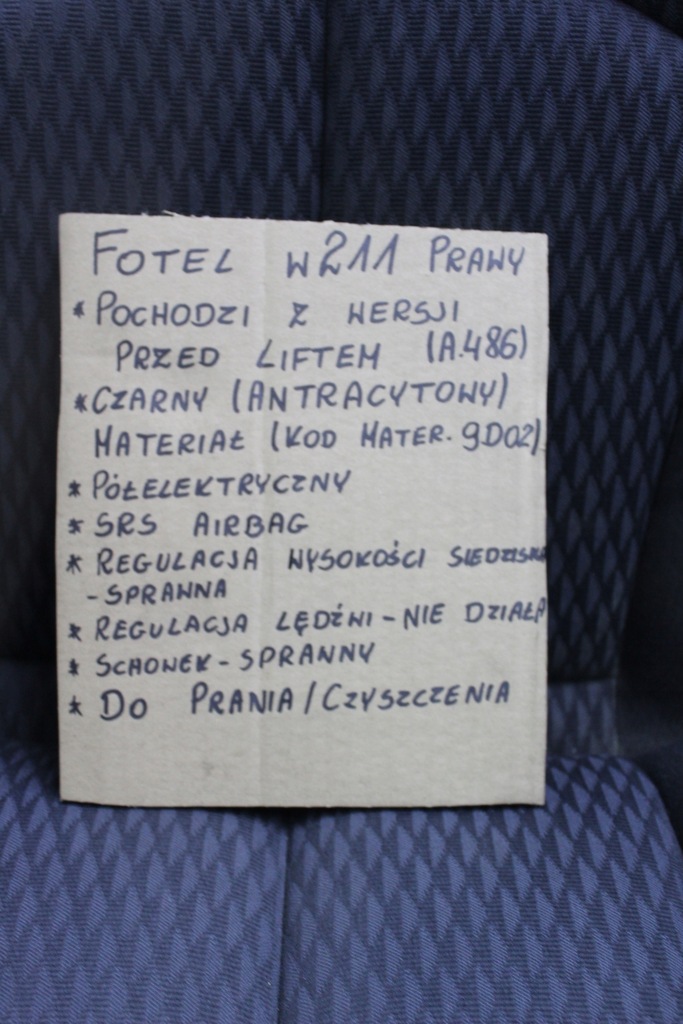 FOTEL W211 PRAWY
* POCHODZI Z WERSJI
PRZED LIFTEM (A.486)
* CZARNY (ANTRACYTOWY)
MATERIAŁ (KOD MATER. 9D02)
* PÓŁELEKTRYCZNY
* SRS AIRBAG
* REGULACJA WYSOKOŚCI SIEDZISKA
- SPRAWNA
* REGULACJA LĘDŹWI - NIE DZIAŁA
* SCHOWEK - SPRAWNY
* DO PRANIA/CZYSZCZENIA